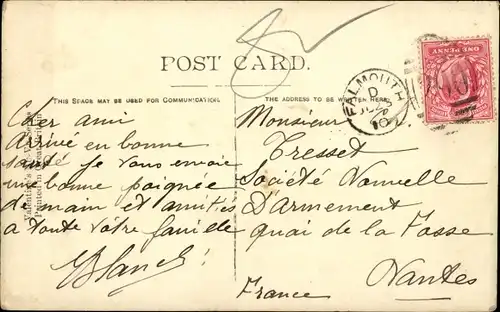 POST CARD.
THIS SPACE MAY BE USED FOR COMMUNICATION.
THE ADDRESS TO BE WRITTEN HERE.
FALMOUTH
D
10
ONE PENNY
Cher ami
Arrivé en bonne
santé je vous envoie
une bonne poignée
de main et amitiés
a toute votre famille
Blanch
Monsieur
Tresset
Société Nouvelle
D'Armement
quai de la Fosse
Nantes
France